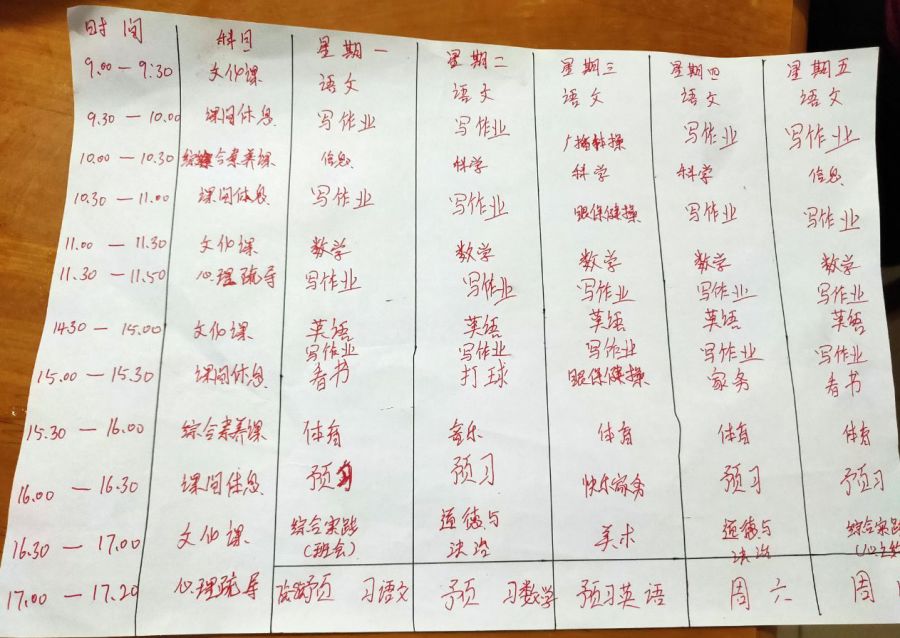 时间 科目 星期一 星期二 星期三 星期四 星期五
9.00—9:30 文化课 语文 语文 语文 语文 语文
9.30—10.00 课间休息 写作业 写作业 广播体操 写作业 写作业
10.00—10.30 综合素养课 信息 科学 科学 科学 信息
10.30—11.00 课间休息 写作业 写作业 眼保健操 写作业 写作业
11.00—11.30 文化课 数学 数学 数学 数学 数学
11.30—11.50 心理疏导 写作业 写作业 写作业 写作业 写作业
14.30—15.00 文化课 英语 英语 英语 英语 英语
写作业 写作业 写作业 写作业 写作业
15.00—15.30 课间休息 看书 打球 眼保健操 家务 看书
15.30—16.00 综合素养课 体育 音乐 体育 体育 体育
16.00—16.30 课间休息 预习 预习 快乐家务 预习 预习
16.30—17.00 文化课 综合实践 道德与 美术 道德与 综合实践
(班会) 法治 法治
17.00—17.20 心理疏导 预习语文 预习数学 预习英语 周六 周